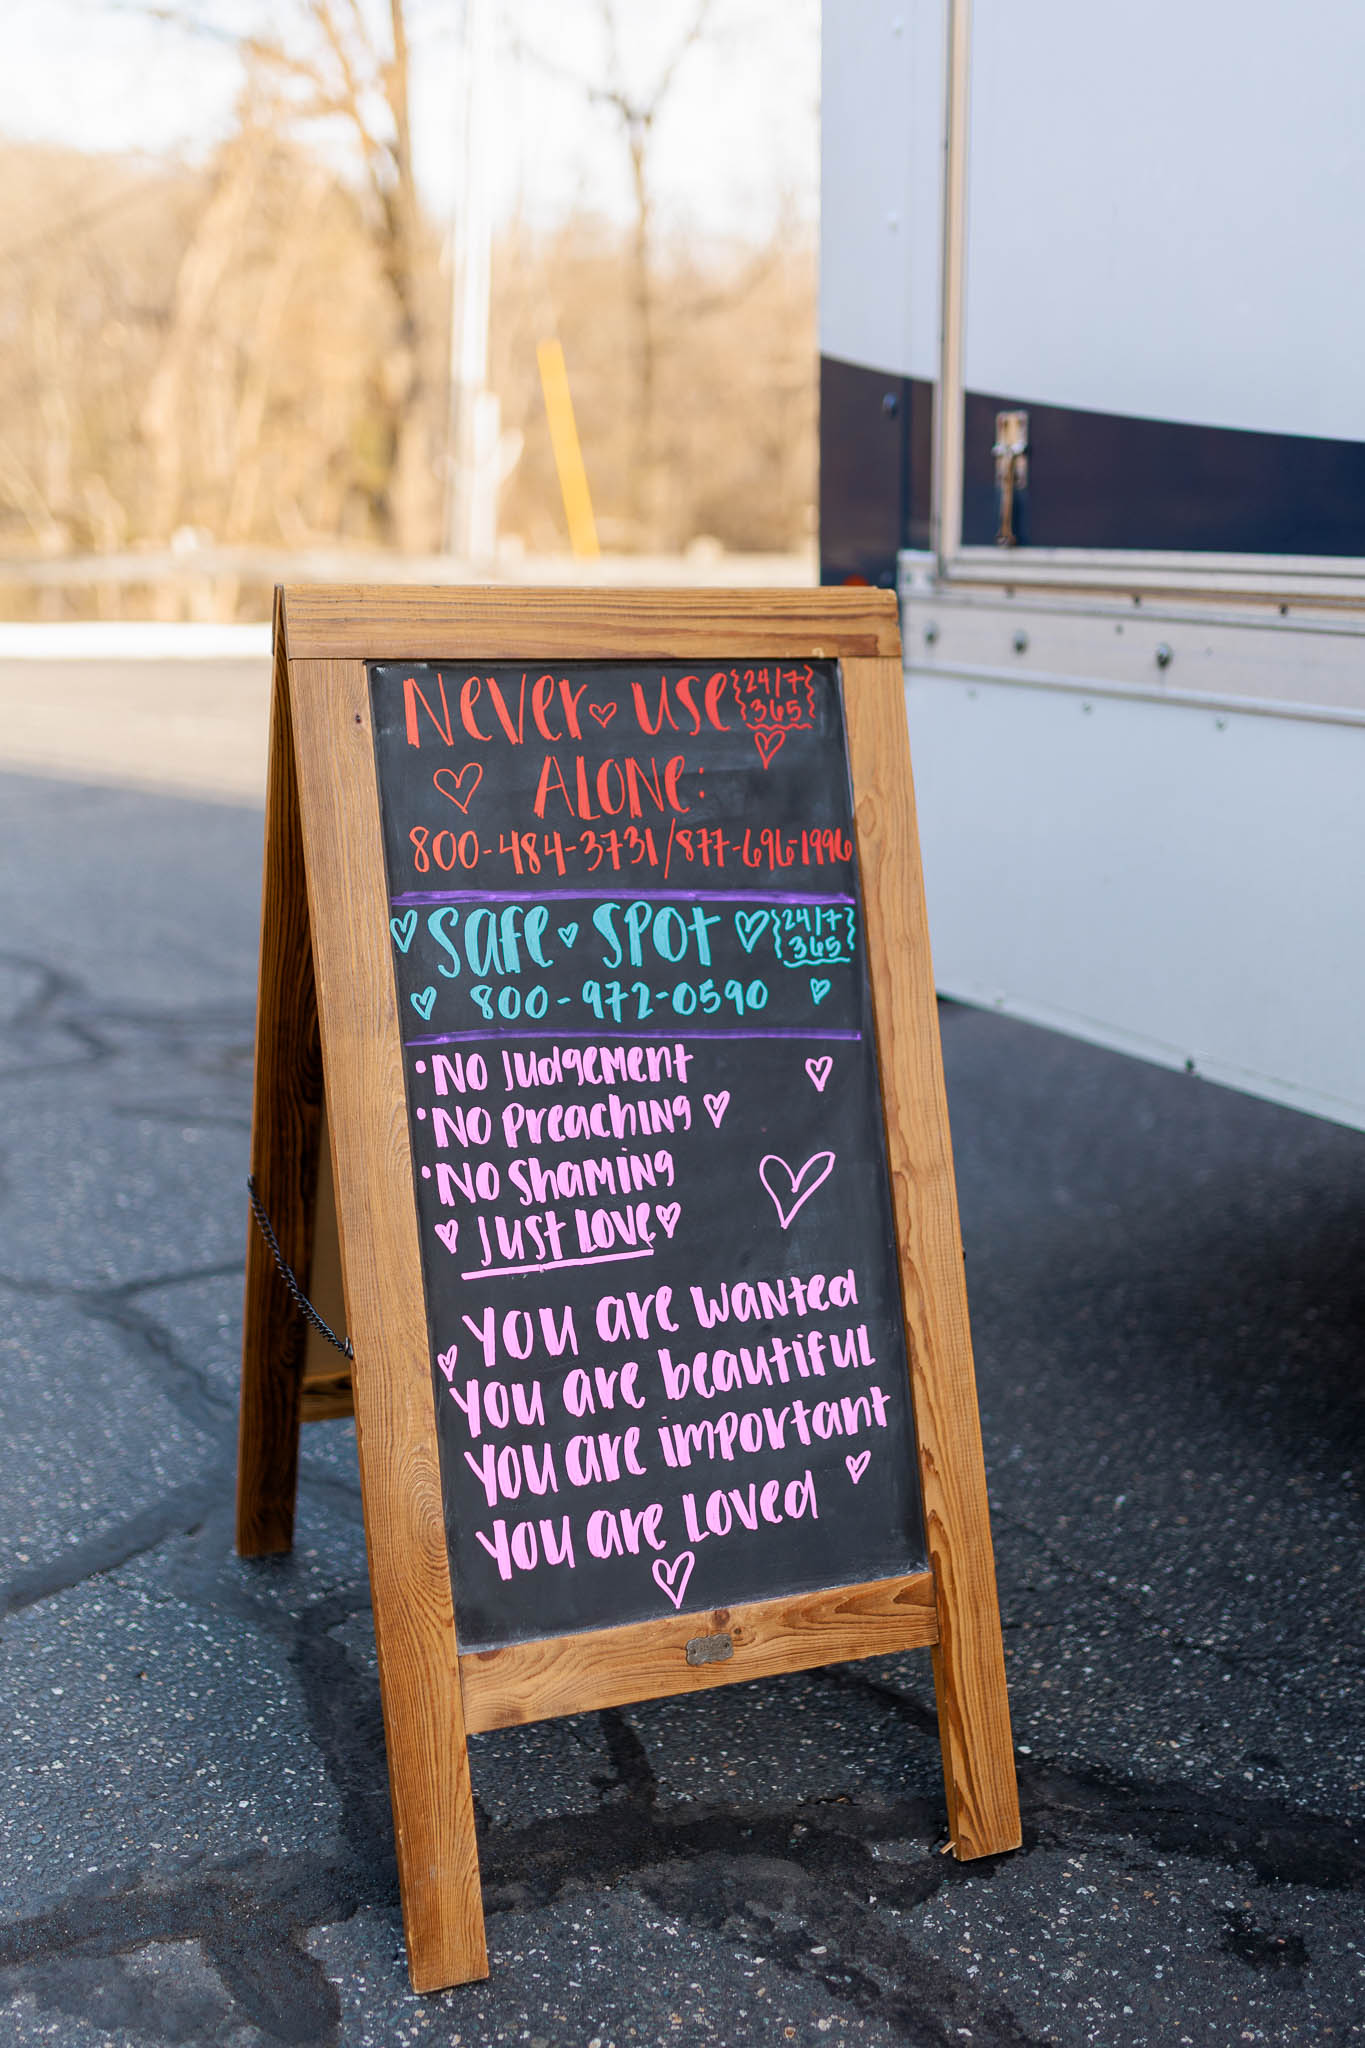 Never use {24/7
365}
Alone:
800-484-3731/877-696-1996
Safe Spot {24/7
365}
800-972-0590
• No Judgement
• No Preaching
• No Shaming
Just Love
You are wanted
You are beautiful
You are important
You are loved